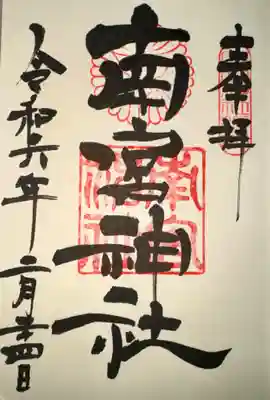 奉拝
南宮神社
令和六年二月廿四日